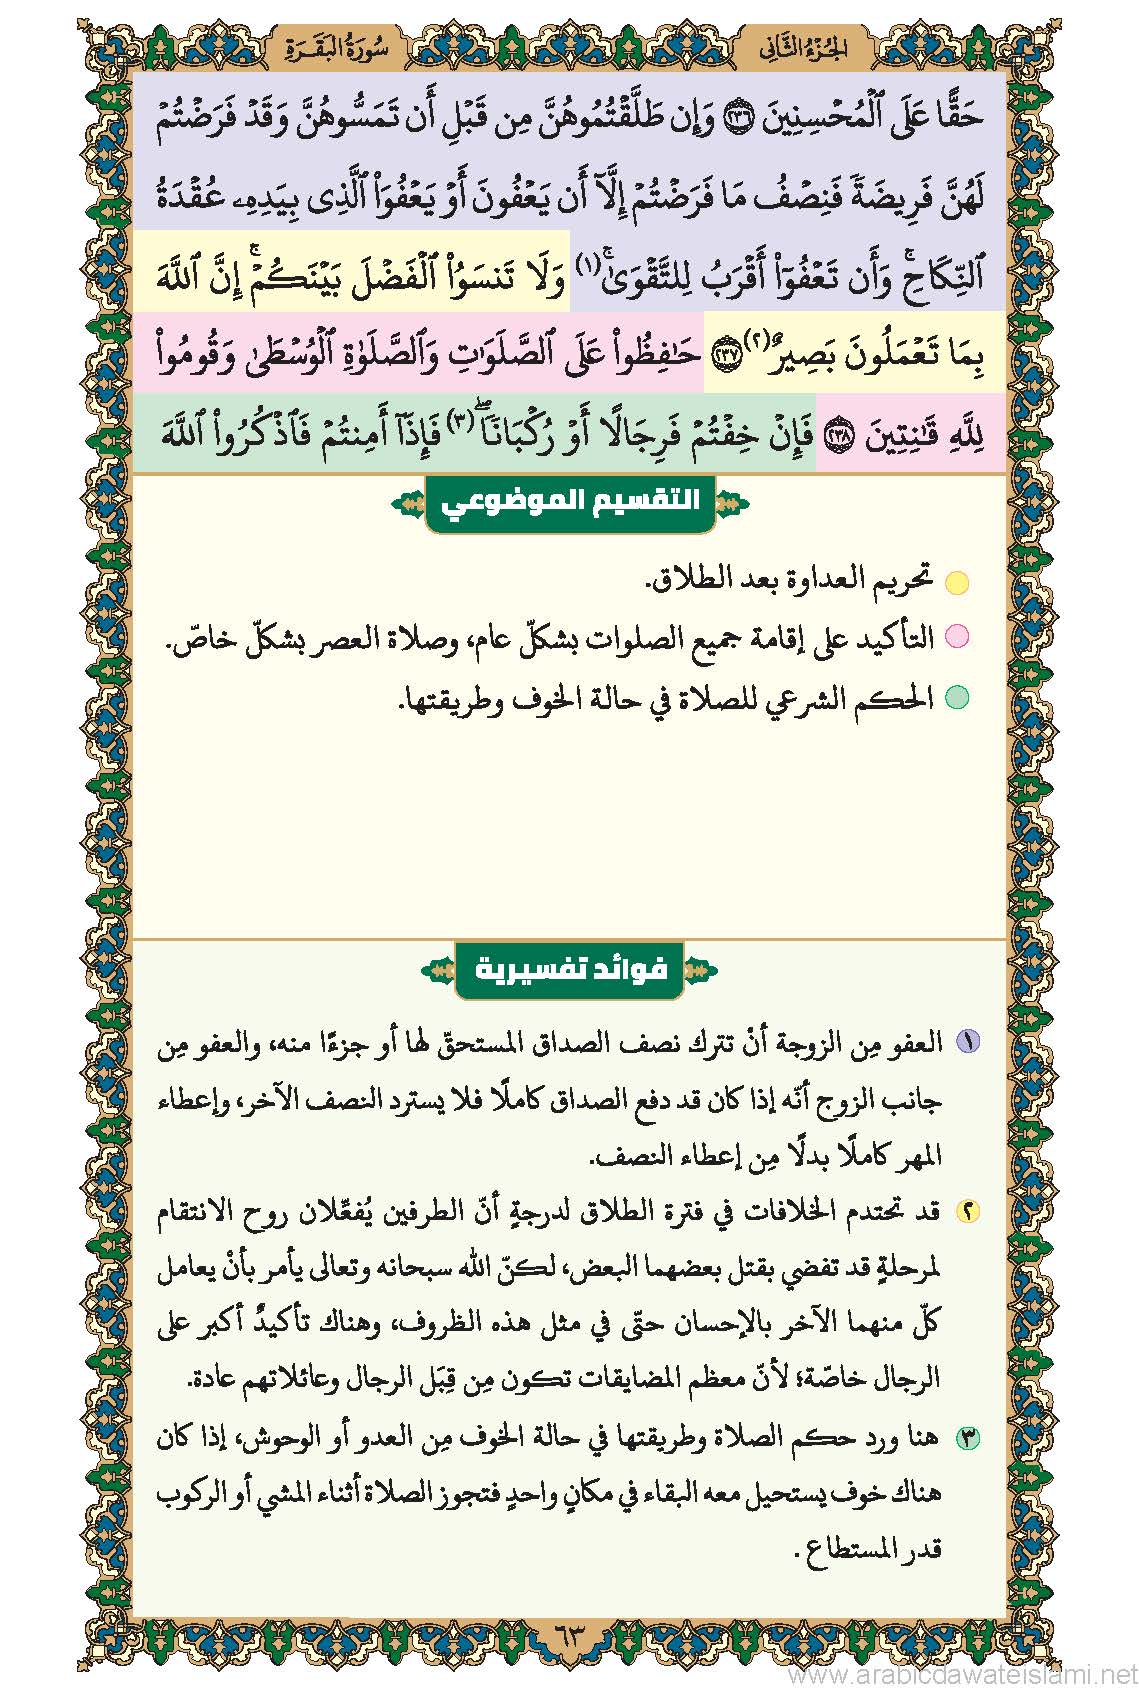 الجُزْءُ الثَّانِي
سُورَةُ البَقَرَةِ
حَقًّا عَلَى ٱلْمُحْسِنِينَ ٢٣٦ وَإِن طَلَّقْتُمُوهُنَّ مِن قَبْلِ أَن تَمَسُّوهُنَّ وَقَدْ فَرَضْتُمْ
لَهُنَّ فَرِيضَةً فَنِصْفُ مَا فَرَضْتُمْ إِلَّآ أَن يَعْفُونَ أَوْ يَعْفُوَا۟ ٱلَّذِى بِيَدِهِۦ عُقْدَةُ
ٱلنِّكَاحِ ۚ وَأَن تَعْفُوٓا۟ أَقْرَبُ لِلتَّقْوَىٰ ۚ (١) وَلَا تَنسَوُا۟ ٱلْفَضْلَ بَيْنَكُمْ ۚ إِنَّ ٱللَّهَ
بِمَا تَعْمَلُونَ بَصِيرٌ (٢) ٢٣٧ حَـٰفِظُوا۟ عَلَى ٱلصَّلَوَٰتِ وَٱلصَّلَوٰةِ ٱلْوُسْطَىٰ وَقُومُوا۟
لِلَّهِ قَـٰنِتِينَ ٢٣٨ فَإِنْ خِفْتُمْ فَرِجَالًا أَوْ رُكْبَانًا ۖ (٣) فَإِذَآ أَمِنتُمْ فَٱذْكُرُوا۟ ٱللَّهَ
التقسيم الموضوعي
تحريم العداوة بعد الطلاق.
التأكيد على إقامة جميع الصلوات بشكلّ عام، وصلاة العصر بشكلّ خاصّ.
الحكم الشرعي للصلاة في حالة الخوف وطريقتها.
فوائد تفسيرية
١ العفو مِن الزوجة أنْ تترك نصف الصداق المستحقّ لها أو جزءًا منه، والعفو مِن
جانب الزوج أنّه إذا كان قد دفع الصداق كاملًا فلا يسترد النصف الآخر، وإعطاء
المهر كاملًا بدلًا مِن إعطاء النصف.
٢ قد تحتدم الخلافات في فترة الطلاق لدرجةٍ أنّ الطرفين يُفعّلان روح الانتقام
لمرحلةٍ قد تفضي بقتل بعضهما البعض، لكنّ الله سبحانه وتعالى يأمر بأنْ يعامل
كلّ منهما الآخر بالإحسان حتّى في مثل هذه الظروف، وهناك تأكيدٌ أكبر على
الرجال خاصّة؛ لأنّ معظم المضايقات تكون مِن قِبَل الرجال وعائلاتهم عادة.
٣ هنا ورد حكم الصلاة وطريقتها في حالة الخوف مِن العدو أو الوحوش، إذا كان
هناك خوف يستحيل معه البقاء في مكانٍ واحدٍ فتجوز الصلاة أثناء المشي أو الركوب
قدر المستطاع .
٦٣
www.arabicdawateislami.net